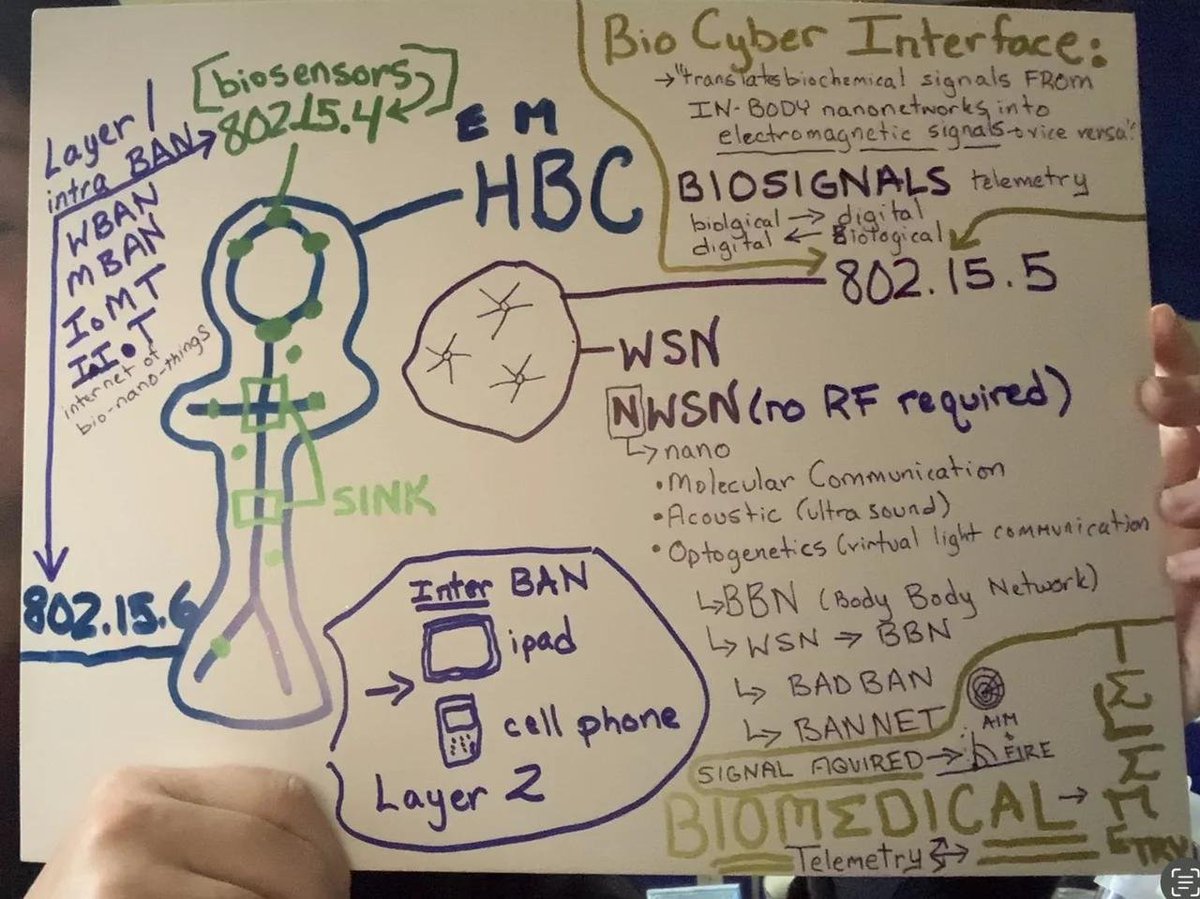 [biosensors]
802.15.4
Layer 1
intra BAN
WBAN
MBAN
IoMT
IIoT
internet of
bio-nano-things
E M
HBC
SINK
802.15.6
Inter BAN
ipad
cell phone
Layer 2
Bio Cyber Interface:
→"translates biochemical signals FROM
IN-BODY nanonetworks into
electromagnetic signals + vice versa"
BIOSIGNALS telemetry
biolgical → digital
digital ← Biological
802.15.5
WSN
NWSN (no RF required)
↳nano
•Molecular Communication
•Acoustic (ultra sound)
•Optogenetics (virtual light communication
↳BBN (Body Body Network)
↳ WSN → BBN
↳ BAD BAN
↳ BANNET
AIM
FIRE
SIGNAL AQUIRED →
BIOMΣDICAL →
Telemetry